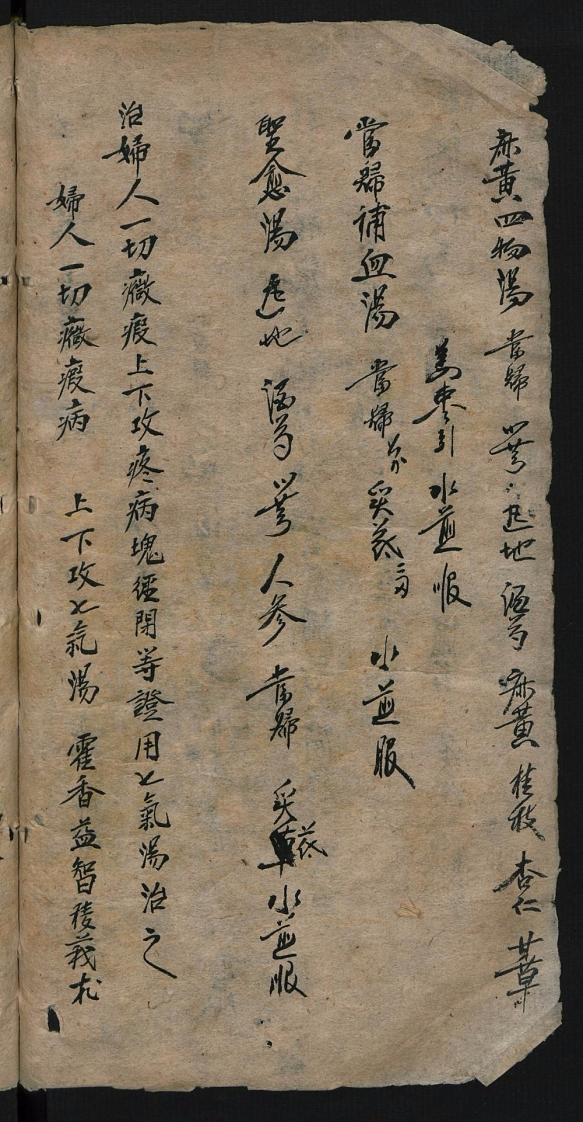 麻黄四物湯 當歸 川芎 熟地 酒芍 麻黄 桂枝 杏仁 甘草
姜枣引 水煎服
當歸補血湯 當歸 炙芪 水煎服
聖愈湯 地 酒芍 川芎 人參 當歸 炙芪 水煎服
治婦人一切癥瘕上下攻疼病塊經閉等證用七氣湯治之
婦人一切癥瘕病 上下攻七氣湯 霍香益智稜莪朮